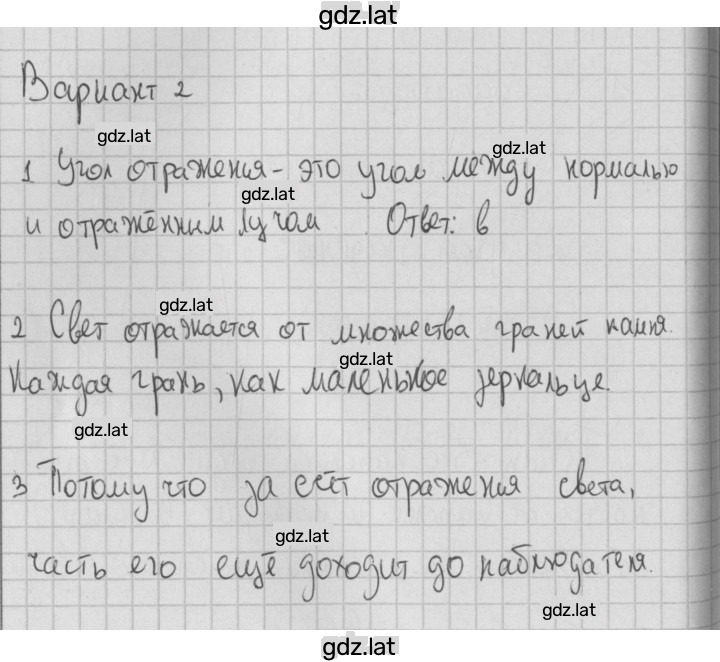 gdz.lat
Вариант 2
gdz.lat
gdz.lat
1 Угол отражения - это угол между нормалью
gdz.lat
и отражённым лучом Ответ: в
gdz.lat
2 Свет отражается от множества граней камня.
gdz.lat
Каждая грань, как маленькое зеркальце.
gdz.lat
3 Потому что за счёт отражения света,
gdz.lat
часть его ещё доходит до наблюдателя.
gdz.lat
gdz.lat